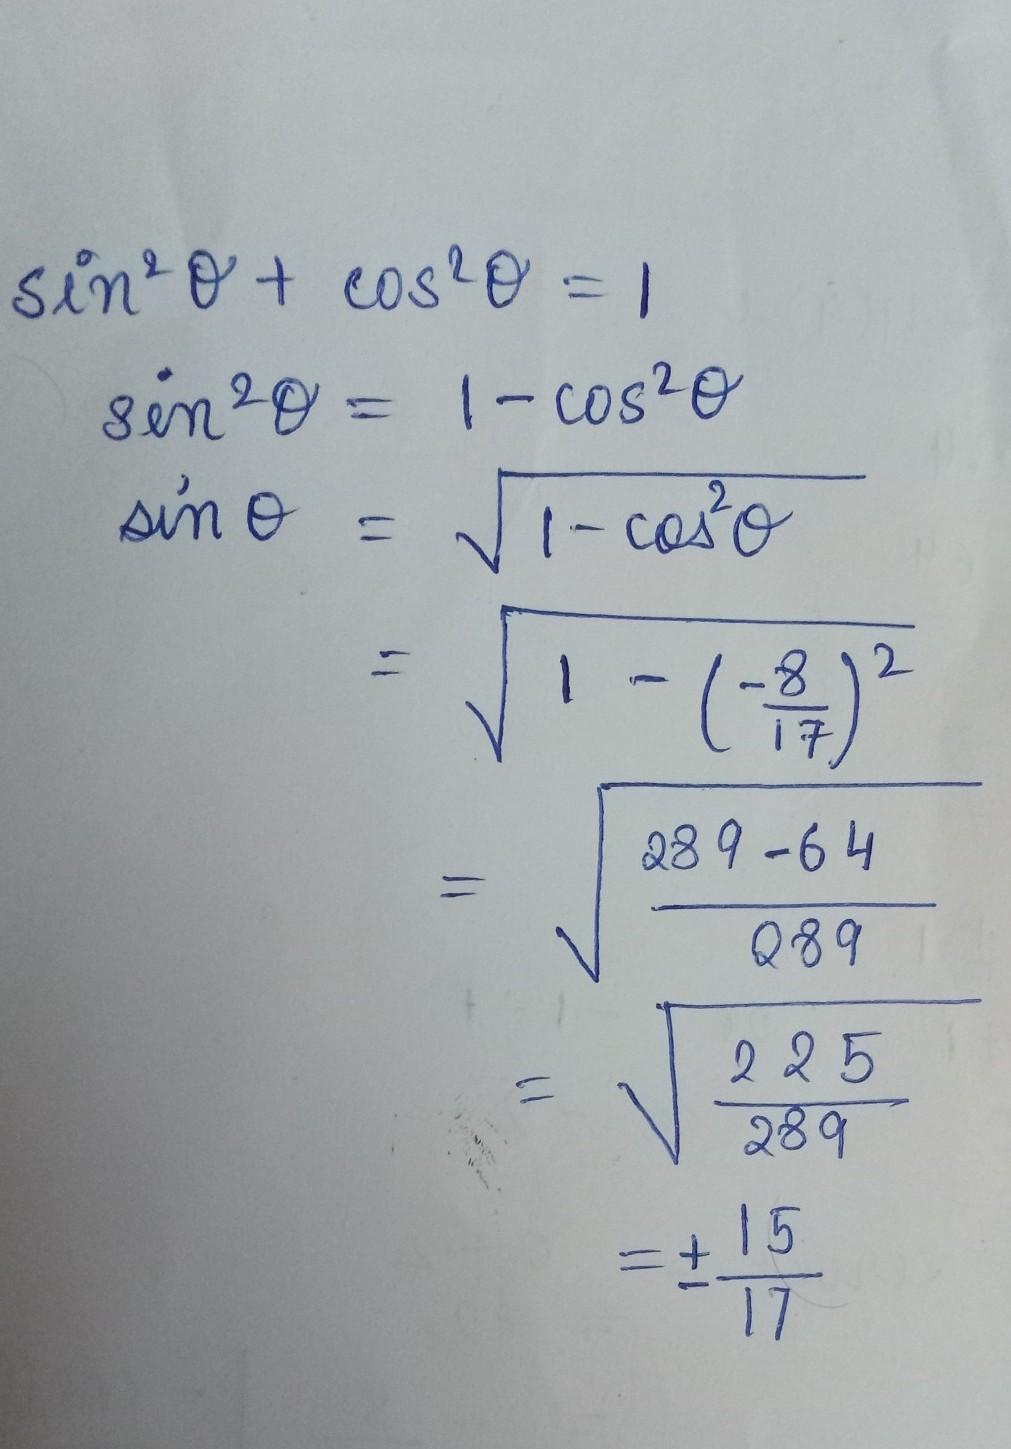 sin²θ + cos²θ = 1
sin²θ = 1 - cos²θ
sin θ = √(1 - cos²θ)
= √(1 - (-8/17)²)
= √((289 - 64)/289)
= √(225/289)
= ± 15/17